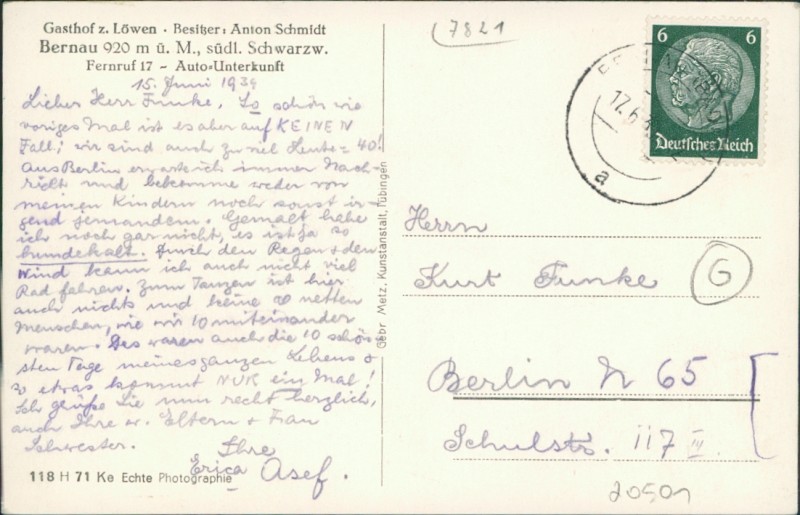 Gasthof z. Löwen · Besitzer: Anton Schmidt
Bernau 920 m ü. M., südl. Schwarzw.
Fernruf 17 – Auto-Unterkunft
15. Juni 1939
Lieber Herr Funke, So schön wie
voriges Mal ist es aber auf KEINEN
Fall; wir sind auch zu viel Leute = 40!
Aus Berlin erwarte ich immer Nach-
richt und bekomme weder von
meinen Kindern noch sonst ir-
gend jemandem. Gemalt habe
ich noch gar nicht, es ist ja so
hundekalt. Durch den Regen + den
Wind kann ich auch nicht viel
Rad fahren. Zum Tanzen ist hier
auch nichts und keine so netten
Menschen, wie wir 10 miteinander
waren. Das waren auch die 10 schön-
sten Tage meines ganzen Lebens &
so etwas kommt NUR ein Mal!
Ich grüße Sie nun recht herzlich,
auch Ihre w. Eltern + Frau
Schwester.
Ihre
Erica Asef.
118 H 71 Ke Echte Photographie
Gebr Metz, Kunstanstalt, Tübingen
7821
6 6
Deutsches Reich
17.6.3
a
Herrn
Kurt Funke
G
Berlin N 65
Schulstr. 117 III
20501